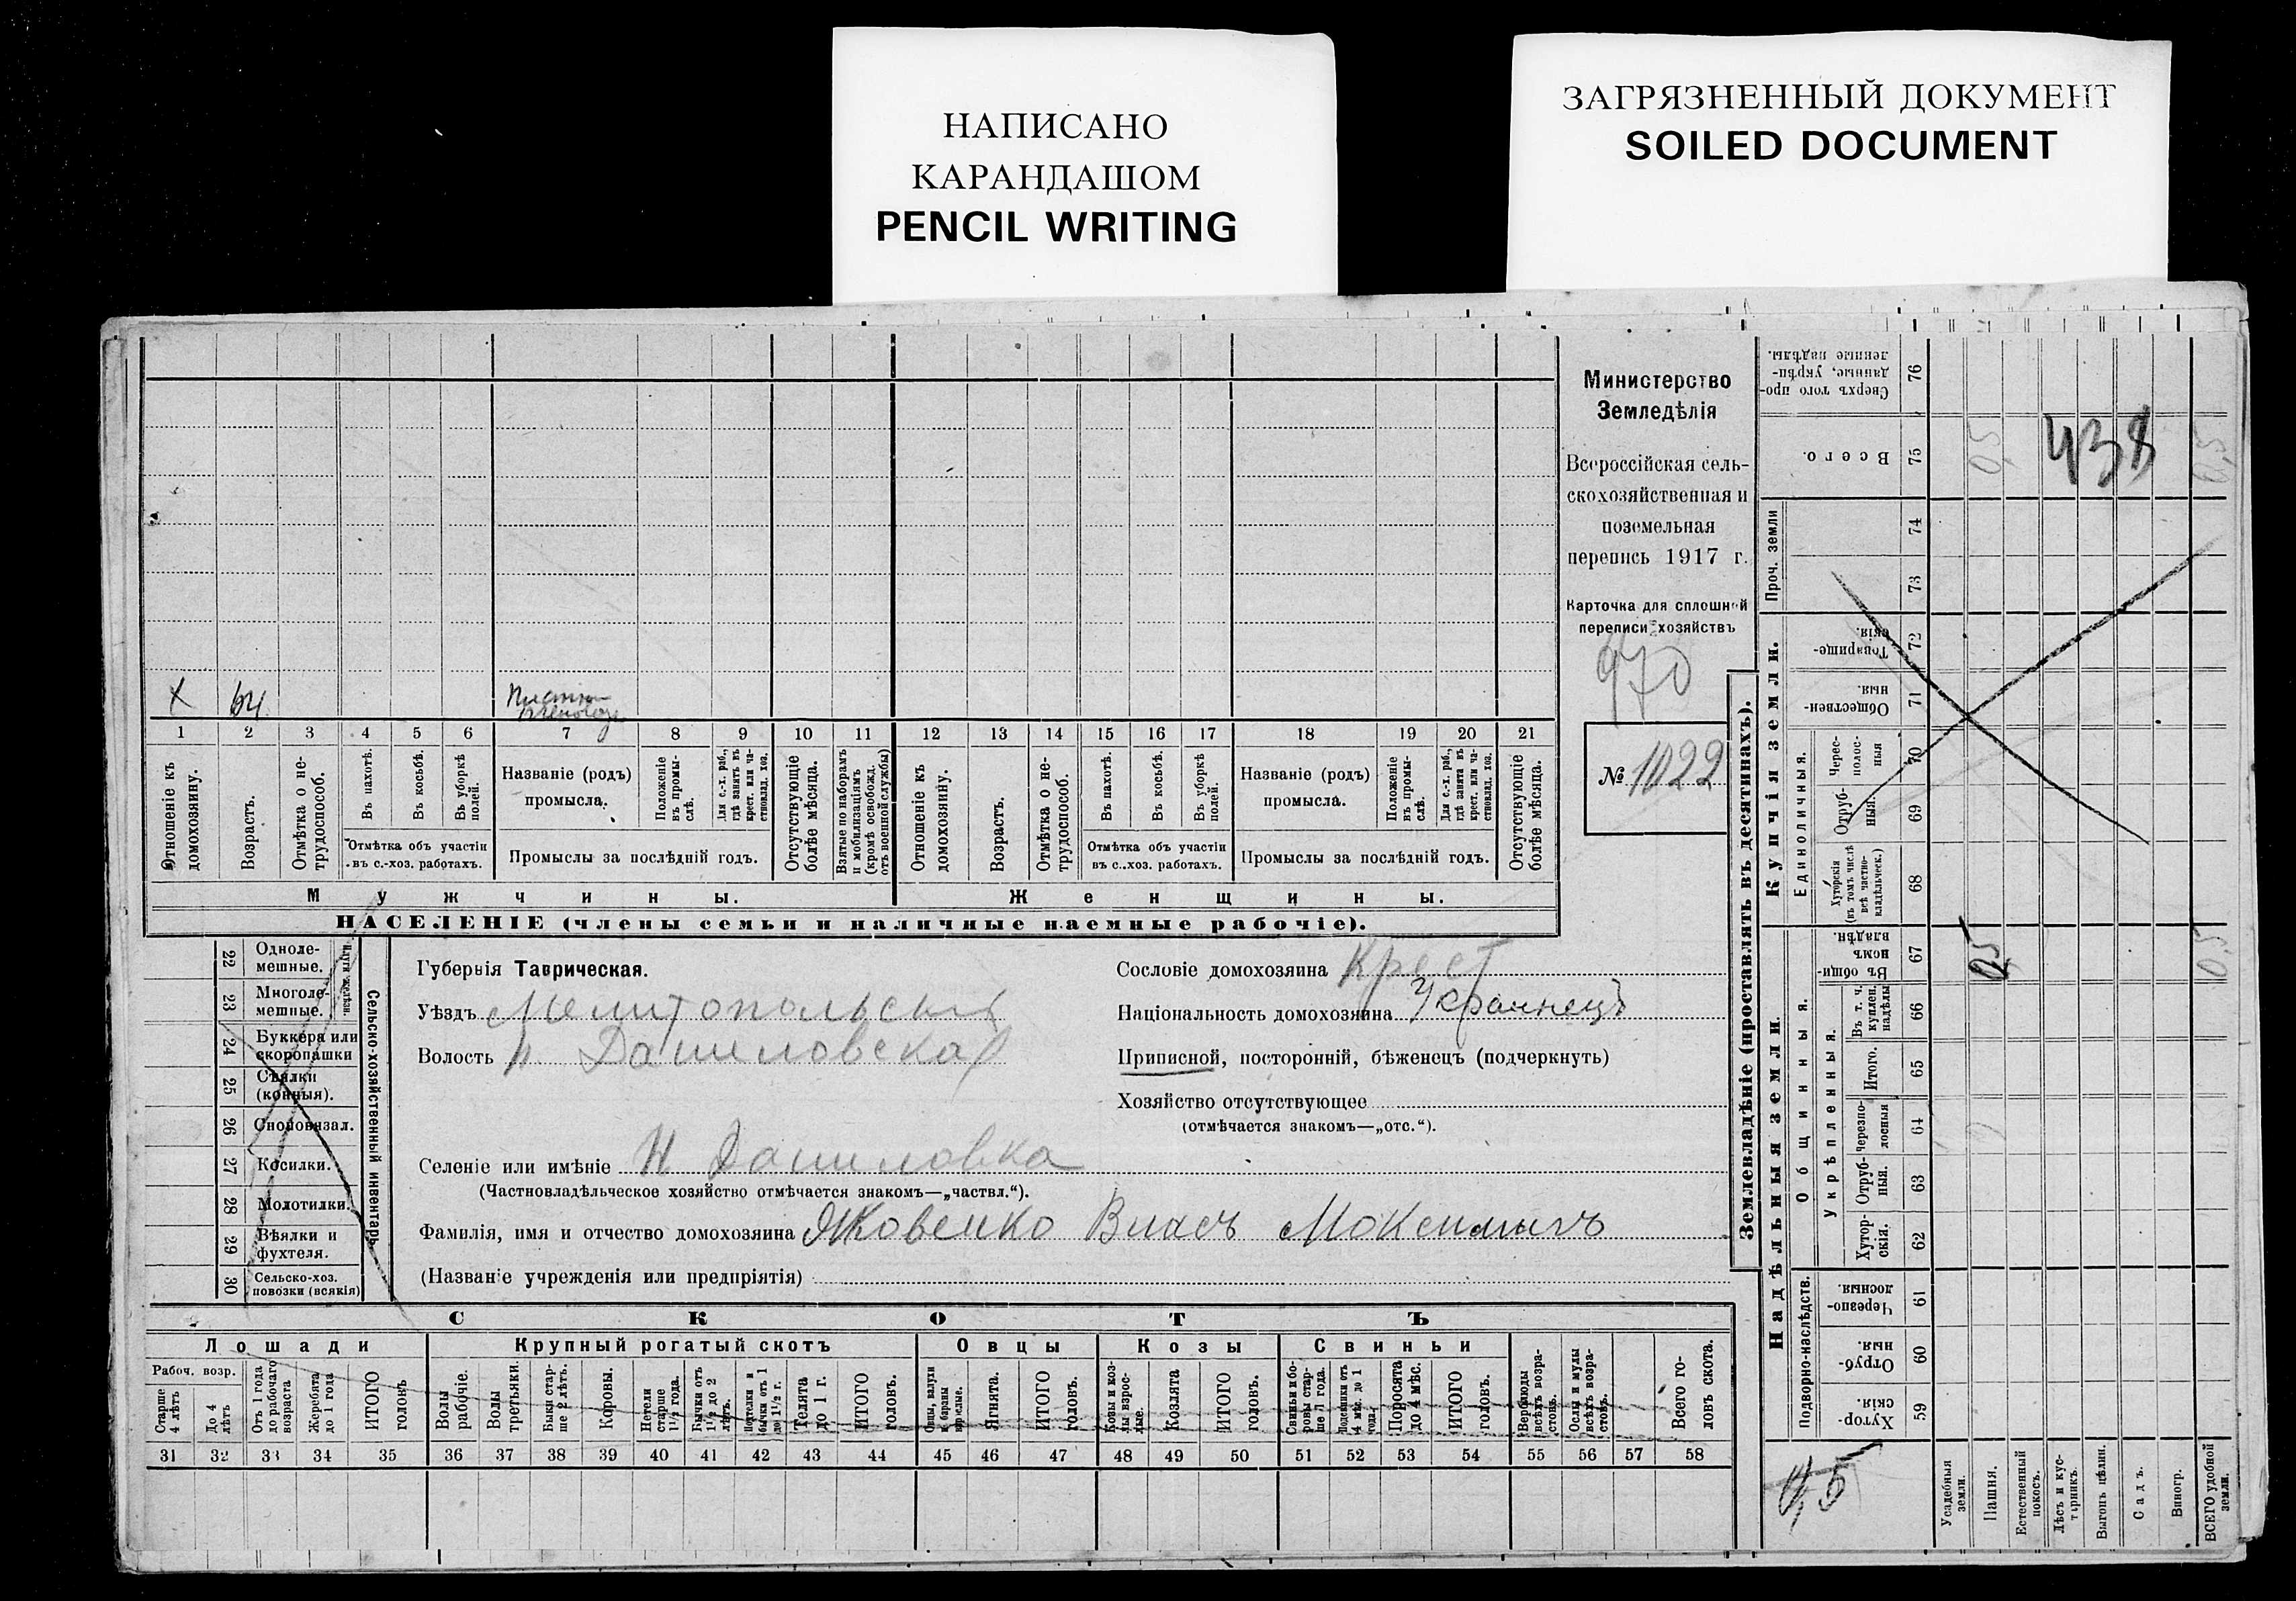 НАПИСАНО
КАРАНДАШОМ
PENCIL WRITING
ЗАГРЯЗНЕННЫЙ ДОКУМЕНТ
SOILED DOCUMENT
Министерство
Земледѣлія
Всероссійская сель-
скохозяйственная и
поземельная
перепись 1917 г.
Карточка для сплошной
переписи хозяйствъ
970
№ 1022
х 64
1 2 3 4 5 6 7 8 9 10 11 12 13 14 15 16 17 18 19 20 21
Отношеніе къ домохозяину.
Возрастъ.
Отмѣтка о не-трудоспособ.
Въ пахотѣ.
Въ косьбѣ.
Въ уборкѣ полей.
Отмѣтка объ участіи
въ с.-хоз. работахъ.
Названіе (родъ)
промысла.
Положеніе въ промы-слѣ.
Для с.-х. раб., гдѣ занятъ въ крест. или ча-стновлад. хоз.
Промыслы за послѣдній годъ.
Отсутствующіе болѣе мѣсяца.
Взятые по наборамъ и мобилизаціямъ (кромѣ освобожд. отъ военной службы)
Отношеніе къ домохозяину.
Возрастъ.
Отмѣтка о не-трудоспособ.
Въ пахотѣ.
Въ косьбѣ.
Въ уборкѣ полей.
Отмѣтка объ участіи
въ с.-хоз. работахъ.
Названіе (родъ)
промысла.
Положеніе въ промы-слѣ.
Для с.-х. раб., гдѣ занята въ крест. или ча-стновлад. хоз.
Промыслы за послѣдній годъ.
Отсутствующіе болѣе мѣсяца.
Мужчины.
Женщины.
НАСЕЛЕНІЕ (члены семьи и наличные наемные рабочіе).
22 Одноле-мешные.
23 Многоле-мешные.
24 Буккера или скоропашки
25 Сѣялки (конныя).
26 Сноповязал.
27 Косилки.
28 Молотилки.
29 Вѣялки и фухтеля.
30 Сельско-хоз. повозки (всякія)
Сельско-хозяйственный инвентарь
Губернія Таврическая.
Уѣздъ Мелитопольскій
Волость Н Даниловская
Селеніе или имѣніе Н Даниловка
(Частновладѣльческое хозяйство отмѣчается знакомъ—„частвл.“).
Фамилія, имя и отчество домохозяина Яковенко Власъ Моксимычъ
(Названіе учрежденія или предпріятія)
Сословіе домохозяина Крест
Національность домохозяина Украинецъ
Приписной, посторонній, бѣженецъ (подчеркнуть)
Хозяйство отсутствующее
(отмѣчается знакомъ—„отс.“).
СКОТЪ
Лошади
Крупный рогатый скотъ
Овцы
Козы
Свиньи
Рабоч. возр.
Старше 4 лѣтъ
До 4 лѣтъ
Отъ 1 года до рабочаго возраста
Жеребята до 1 года
ИТОГО головъ
Волы рабочіе.
Волы третьяки.
Быки стар-ше 2 лѣтъ.
Коровы.
Нетели старше 1½ года.
Бычки отъ 1½ до 2 лѣтъ.
Нетелки и бычки отъ 1 до 1½ г.
Телята до 1 г.
ИТОГО головъ.
Овцы, валухи и бараны взрослые.
Ягнята.
ИТОГО головъ.
Козы и коз-лы взрос-лые.
Козлята
ИТОГО головъ.
Свиньи и бо-ровы стар-ше 1 года.
Подсвинки отъ 4 мѣс. до 1 года.
Поросята до 4 мѣс.
ИТОГО головъ.
Верблюды всѣхъ возра-стовъ.
Ослы и мулы всѣхъ возра-стовъ.
Всего го-ловъ скота.
31 32 33 34 35 36 37 38 39 40 41 42 43 44 45 46 47 48 49 50 51 52 53 54 55 56 57 58
Землевладѣніе (проставлять въ десятинахъ).
Купчія земли.
Проч. земли
Надѣльныя земли
Единоличныя.
Общинныя.
Укрѣпленныя.
Подворно-наслѣдств.
Сверхъ того про-данные, укрѣп-ленные надѣлы. 76
Всего. 75
74
73
Товарище-скія. 72
Обществен-ныя. 71
Черес-полос-ныя 70
Отруб-ныя. 69
Хуторскія (въ томъ числѣ всѣ частно-владѣльческ.) 68
Въ общин-номъ владѣн. 67
Въ т. ч. куплен. надѣлы 66
Итого. 65
Черезпо-лосныя 64
Отруб-ныя. 63
Хутор-скія. 62
Черезпо-лосныя 61
Отруб-ныя. 60
Хутор-скія. 59
438
0,5
0,5
0,5
0,5
Усадебныя земли.
Пашня.
Естественный покосъ.
Лѣсъ и кус-тарникъ.
Выгонъ цѣлин.
Садъ.
Виногр.
ВСЕГО удобной земли.